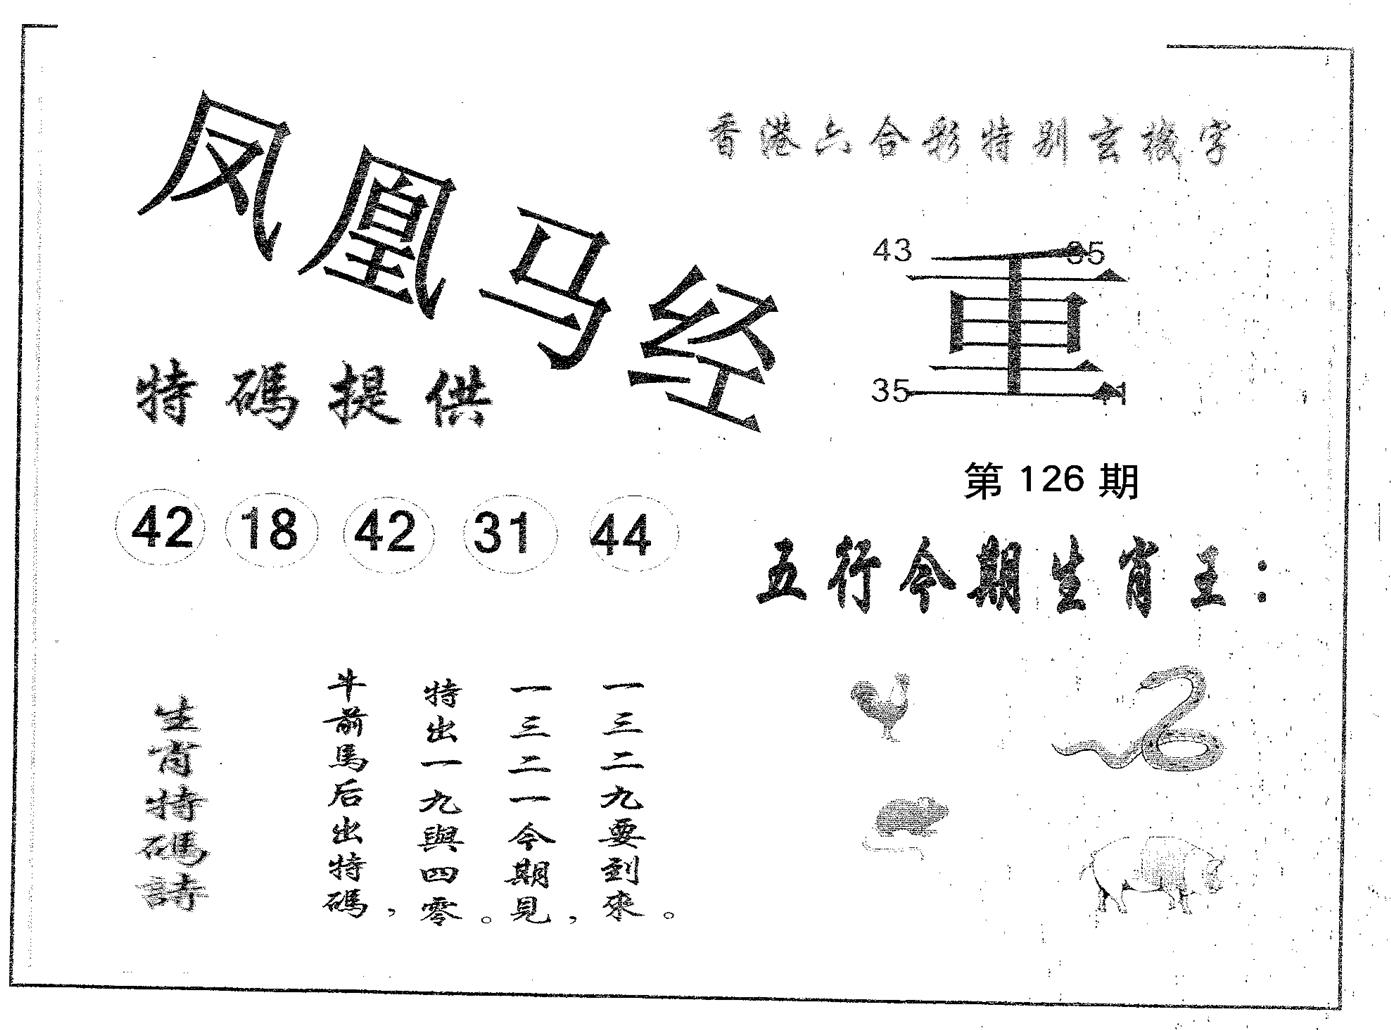 凤凰马经
香港六合彩特别玄機字
43
重
35
第 126 期
特碼提供
42 18 42 31 44
五行今期生肖王：
生肖特碼詩
牛前馬后出特碼，
特出一九與四零。
一三二一今期見，
一三二九要到來。